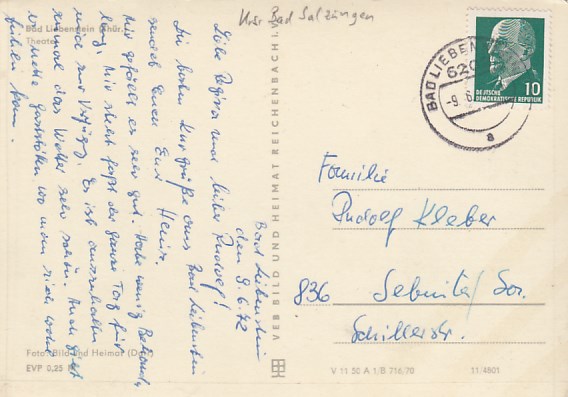 Krs. Bad Salzungen
Bad Liebenstein (Thür.)
Theater
Bad Liebenstein
den 9.6.72
Liebe Regina und lieber Rudolf!
Die besten Kurgrüße aus Bad Liebenstein
sendet Euch Eure Heinz.
Mir gefällt es sehr gut. Habe wenig Behand,
lung. Mir steht fast der ganze Tag für
mich zur Verfügung. Es ist auszuhalten
zumal das Wetter sehr schön. Auch gibt
es nette Gaststätten wo man sich wohl
fühlen kann.
Foto: Bild und Heimat
EVP 0,25
VEB BILD UND HEIMAT REICHENBACH i.
BAD LIEBEN
620
-9.6.
a
10
DEUTSCHE
DEMOKRATISCHE REPUBLIK
Familie
Rudolf Kleber
836 Sebnitz/Sa.
Schillerstr.
V 11 50 A 1/B 716,70 11/4801